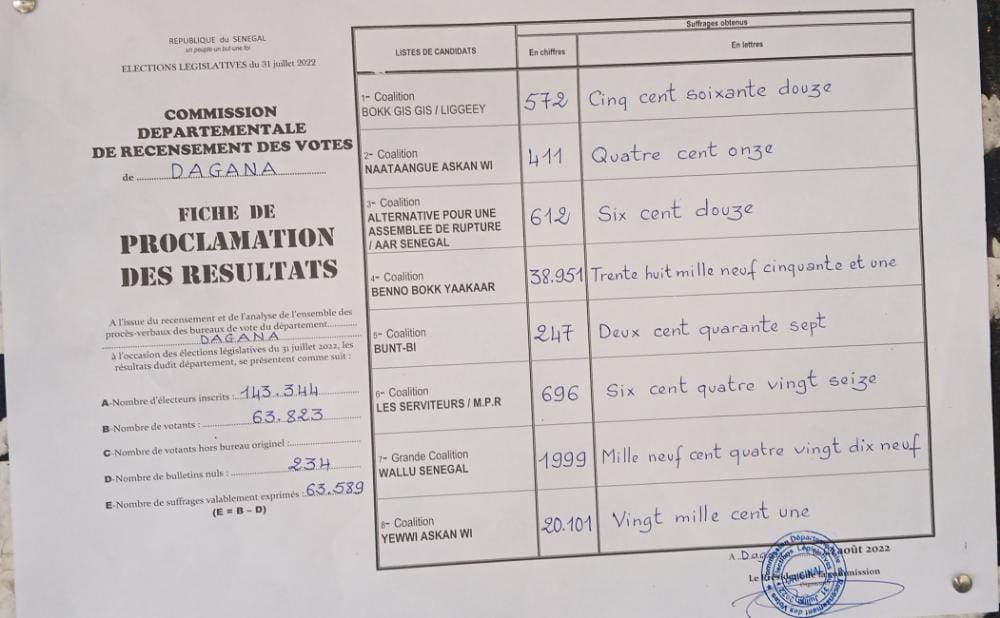 REPUBLIQUE du SENEGAL
un peuple-un but-une foi
ELECTIONS LEGISLATIVES du 31 juillet 2022
COMMISSION
DEPARTEMENTALE
DE RECENSEMENT DES VOTES
de ..... DAGANA .....
FICHE DE
PROCLAMATION
DES RESULTATS
A l'issue du recensement et de l'analyse de l'ensemble des
procès-verbaux des bureaux de vote du département............
DAGANA
à l'occasion des élections législatives du 31 juillet 2022, les
résultats dudit département, se présentent comme suit :
A-Nombre d'électeurs inscrits : 143.344
B-Nombre de votants : 63.823
C-Nombre de votants hors bureau originel :
D-Nombre de bulletins nuls : 234
E-Nombre de suffrages valablement exprimés : 63.589
(E = B – D)
LISTES DE CANDIDATS
Suffrages obtenus
En chiffres
En lettres
1- Coalition
BOKK GIS GIS / LIGGEEY
572
Cinq cent soixante douze
2- Coalition
NAATAANGUE ASKAN WI
411
Quatre cent onze
3- Coalition
ALTERNATIVE POUR UNE
ASSEMBLEE DE RUPTURE
/ AAR SENEGAL
612
Six cent douze
4- Coalition
BENNO BOKK YAAKAAR
38.951
Trente huit mille neuf cinquante et une
5- Coalition
BUNT-BI
247
Deux cent quarante sept
6- Coalition
LES SERVITEURS / M.P.R
696
Six cent quatre vingt seize
7- Grande Coalition
WALLU SENEGAL
1999
Mille neuf cent quatre vingt dix neuf
8- Coalition
YEWWI ASKAN WI
20.101
Vingt mille cent une
A Dag août 2022
Le Commission
ORIGINAL